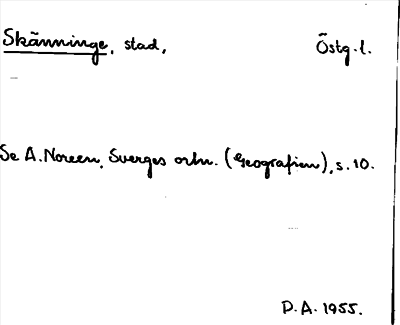 Skänninge, stad, Östg. l.
Se A. Noreen, Sverges ortn. (Geografien), s. 10.
D. A. 1955.